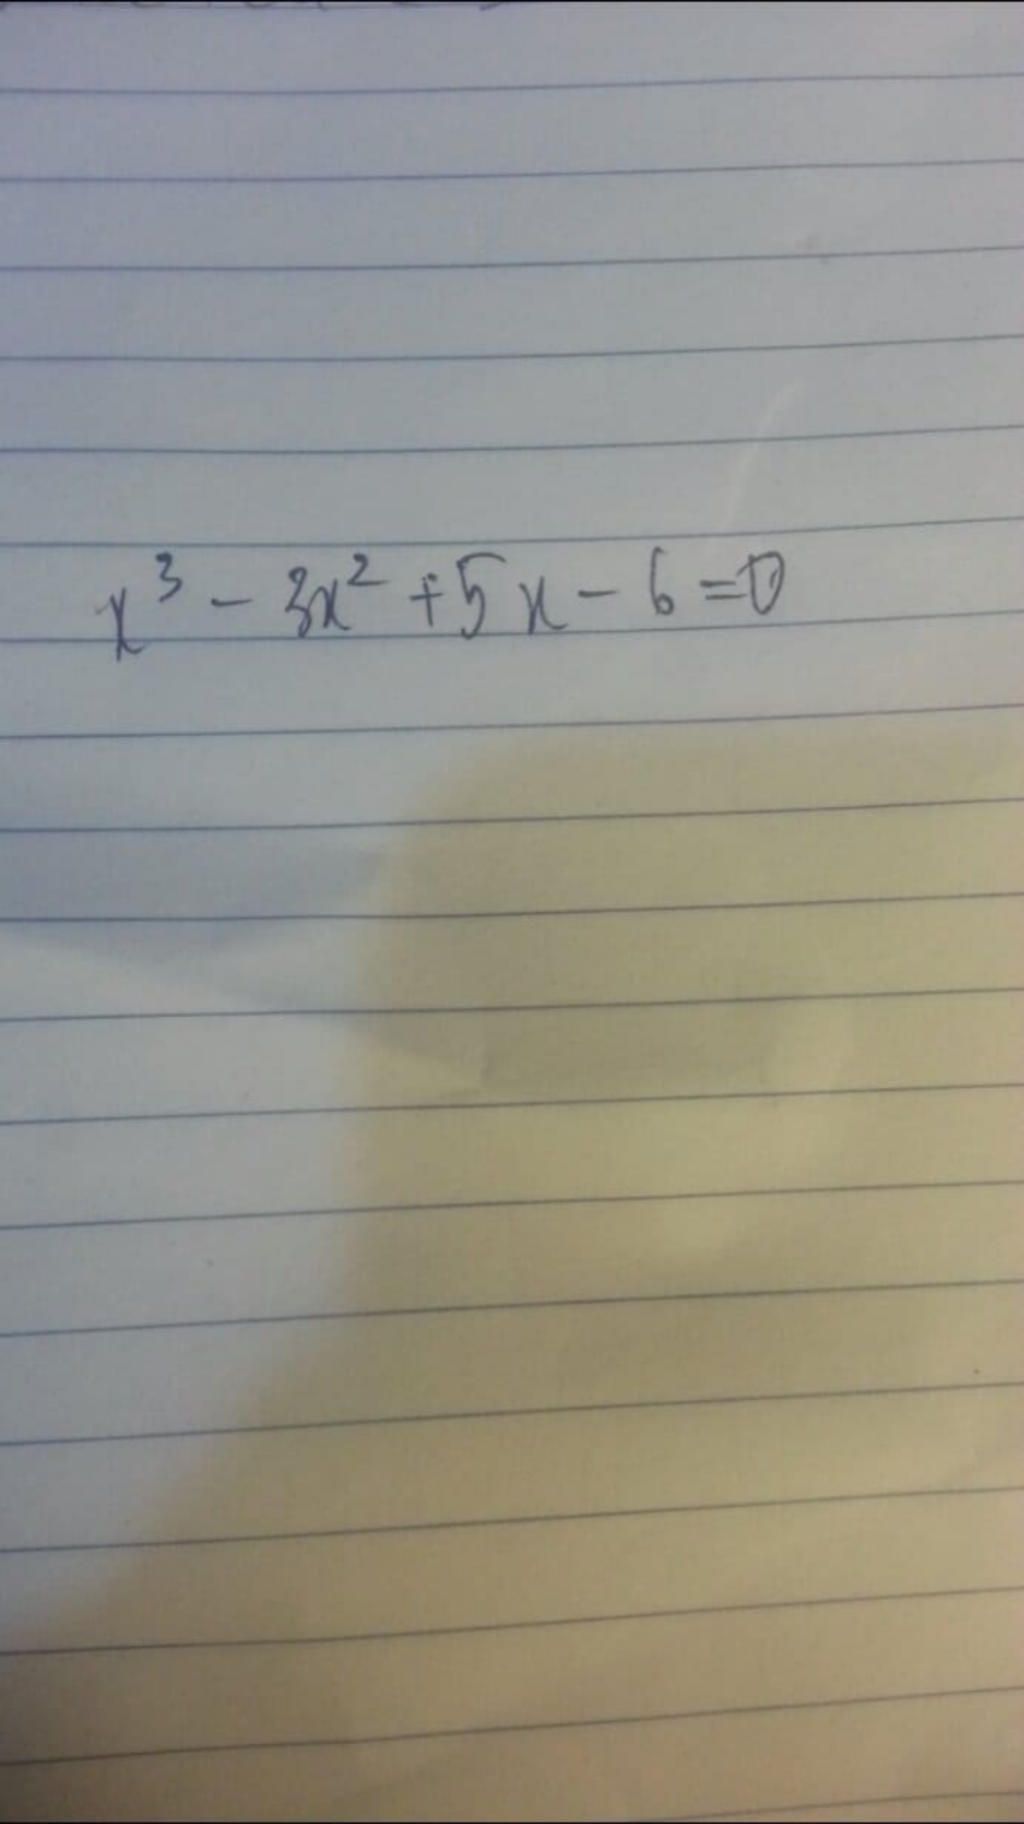 x³ - 3x² + 5x - 6 = 0